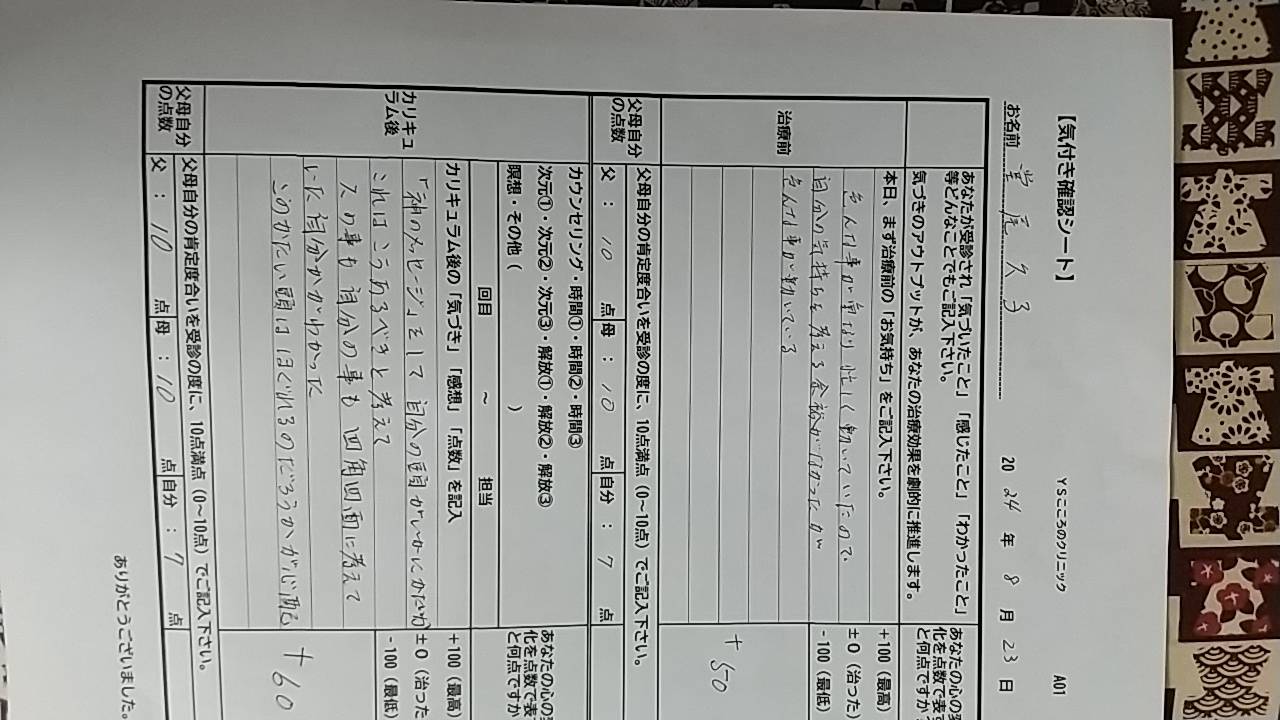 【気付き確認シート】
YSこころのクリニック A01
お名前 堂尾久子 2024年8月23日
あなたが受診され「気づいたこと」「感じたこと」「わかったこと」
等どんなことでもご記入下さい。
気づきのアウトプットが、あなたの治療効果を劇的に推進します。
あなたの心の
化を点数で表
と何点ですか
治療前
本日、まず治療前の「お気持ち」をご記入下さい。
+100(最高)
±0(治った
-100(最低)
色んな事が重なり忙しく動いていたので、
自分の気持ちを考える余裕が無かったが
色んな事が動いている
+50
父母自分
の点数
父母自分の肯定度合いを受診の度に、10点満点(0~10点)でご記入下さい。
父:10点 母:10点 自分:7点
カリキュ
ラム後
カウンセリング・時間①・時間②・時間③
次元①・次元②・次元③・解放①・解放②・解放③
瞑想・その他( )
あなたの心の
化を点数で表
と何点ですか
回目 ~ 担当
カリキュラム後の「気づき」「感想」「点数」を記入
+100(最高)
±0(治った
-100(最低)
「神のメッセージ」をして 自分の頭がいかにかたいか
これはこうあるべきと考えて
の事も 自分の事も 四角四面に考えて
いた自分がわかった
このかたい頭はほぐれるのだろうかが心配
+60
父母自分
の点数
父母自分の肯定度合いを受診の度に、10点満点(0~10点)でご記入下さい。
父:10点 母:10点 自分:7点
ありがとうございました。